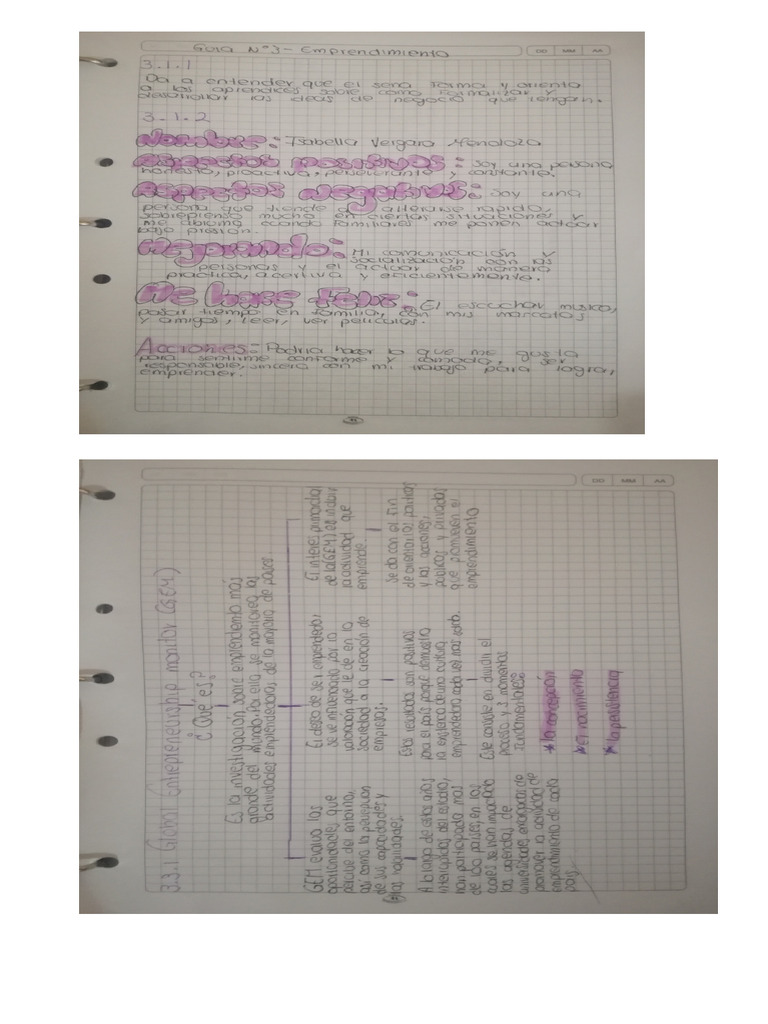 Guia N°3 - Emprendimiento
DD MM AA
3.1.1
Da a entender que el sena forma y orienta
a los aprendices sobre como formalizar y
desarrollar las ideas de negocio que tengan.
3.1.2
Nombre: Isabella Vergara Mendoza
Aspectos positivos: Soy una persona
honesta, proactiva, perseverante y constante.
Aspectos Negativos: Soy una
persona que tiende a alterarse rapido,
sobrepienso mucho en ciertas situaciones y
me abruma cuando familiares me ponen actuar
bajo presión.
Mejorando: Mi comunicación y
socialización con las
personas y el actuar de manera
practica, acertiva y eficientemente.
Me hace Feliz: El escuchar musica,
pasar tiempo en familia, con mis mascotas
y amigos, leer, ver peliculas.
Acciones: Podria hacer lo que me gusta
para sentirme conforme y comoda, ser
responsable, sincera con mi trabajo para lograr
emprender.
DD MM AA
3.3.1 Global Entrepreneurship monitor (GEM)
¿Qué es?
Es la investigación sobre emprendimiento más
grande del Mundo. Por ella se monitorea las
actividades emprendedoras de la mayoria de paises
GEM evalua las
oportunidades que
percibe del entorno,
así como la percepcion
de sus capacidades y
habilidades.
A lo largo de estos años
interrumpidos del estudio,
han participado mas
de 100 paises, en los
cuales se vean involucrada
las agencias de
universidades encargadas de
promover la actividad de
emprendimiento de cada
pais.
El deseo de ser emprendedor
se ve influenciado por la
valoración que le de en la
sociedad a la creación de
empresas.
Estos resultados son positivos
para el país porque demuestra
la existencia de una cultura
emprendedora cada vez mas solida.
Este consiste en dividir el
proceso y 3 momentos
fundamentales:
* la concepción
* El nacimiento
* la persistencia
El interes primordial
de la (GEM) es
la actividad que
emprende.
Se da con el fin
de orientar las politicas
y las acciones,
publicas y privadas
que promueven el
emprendimiento